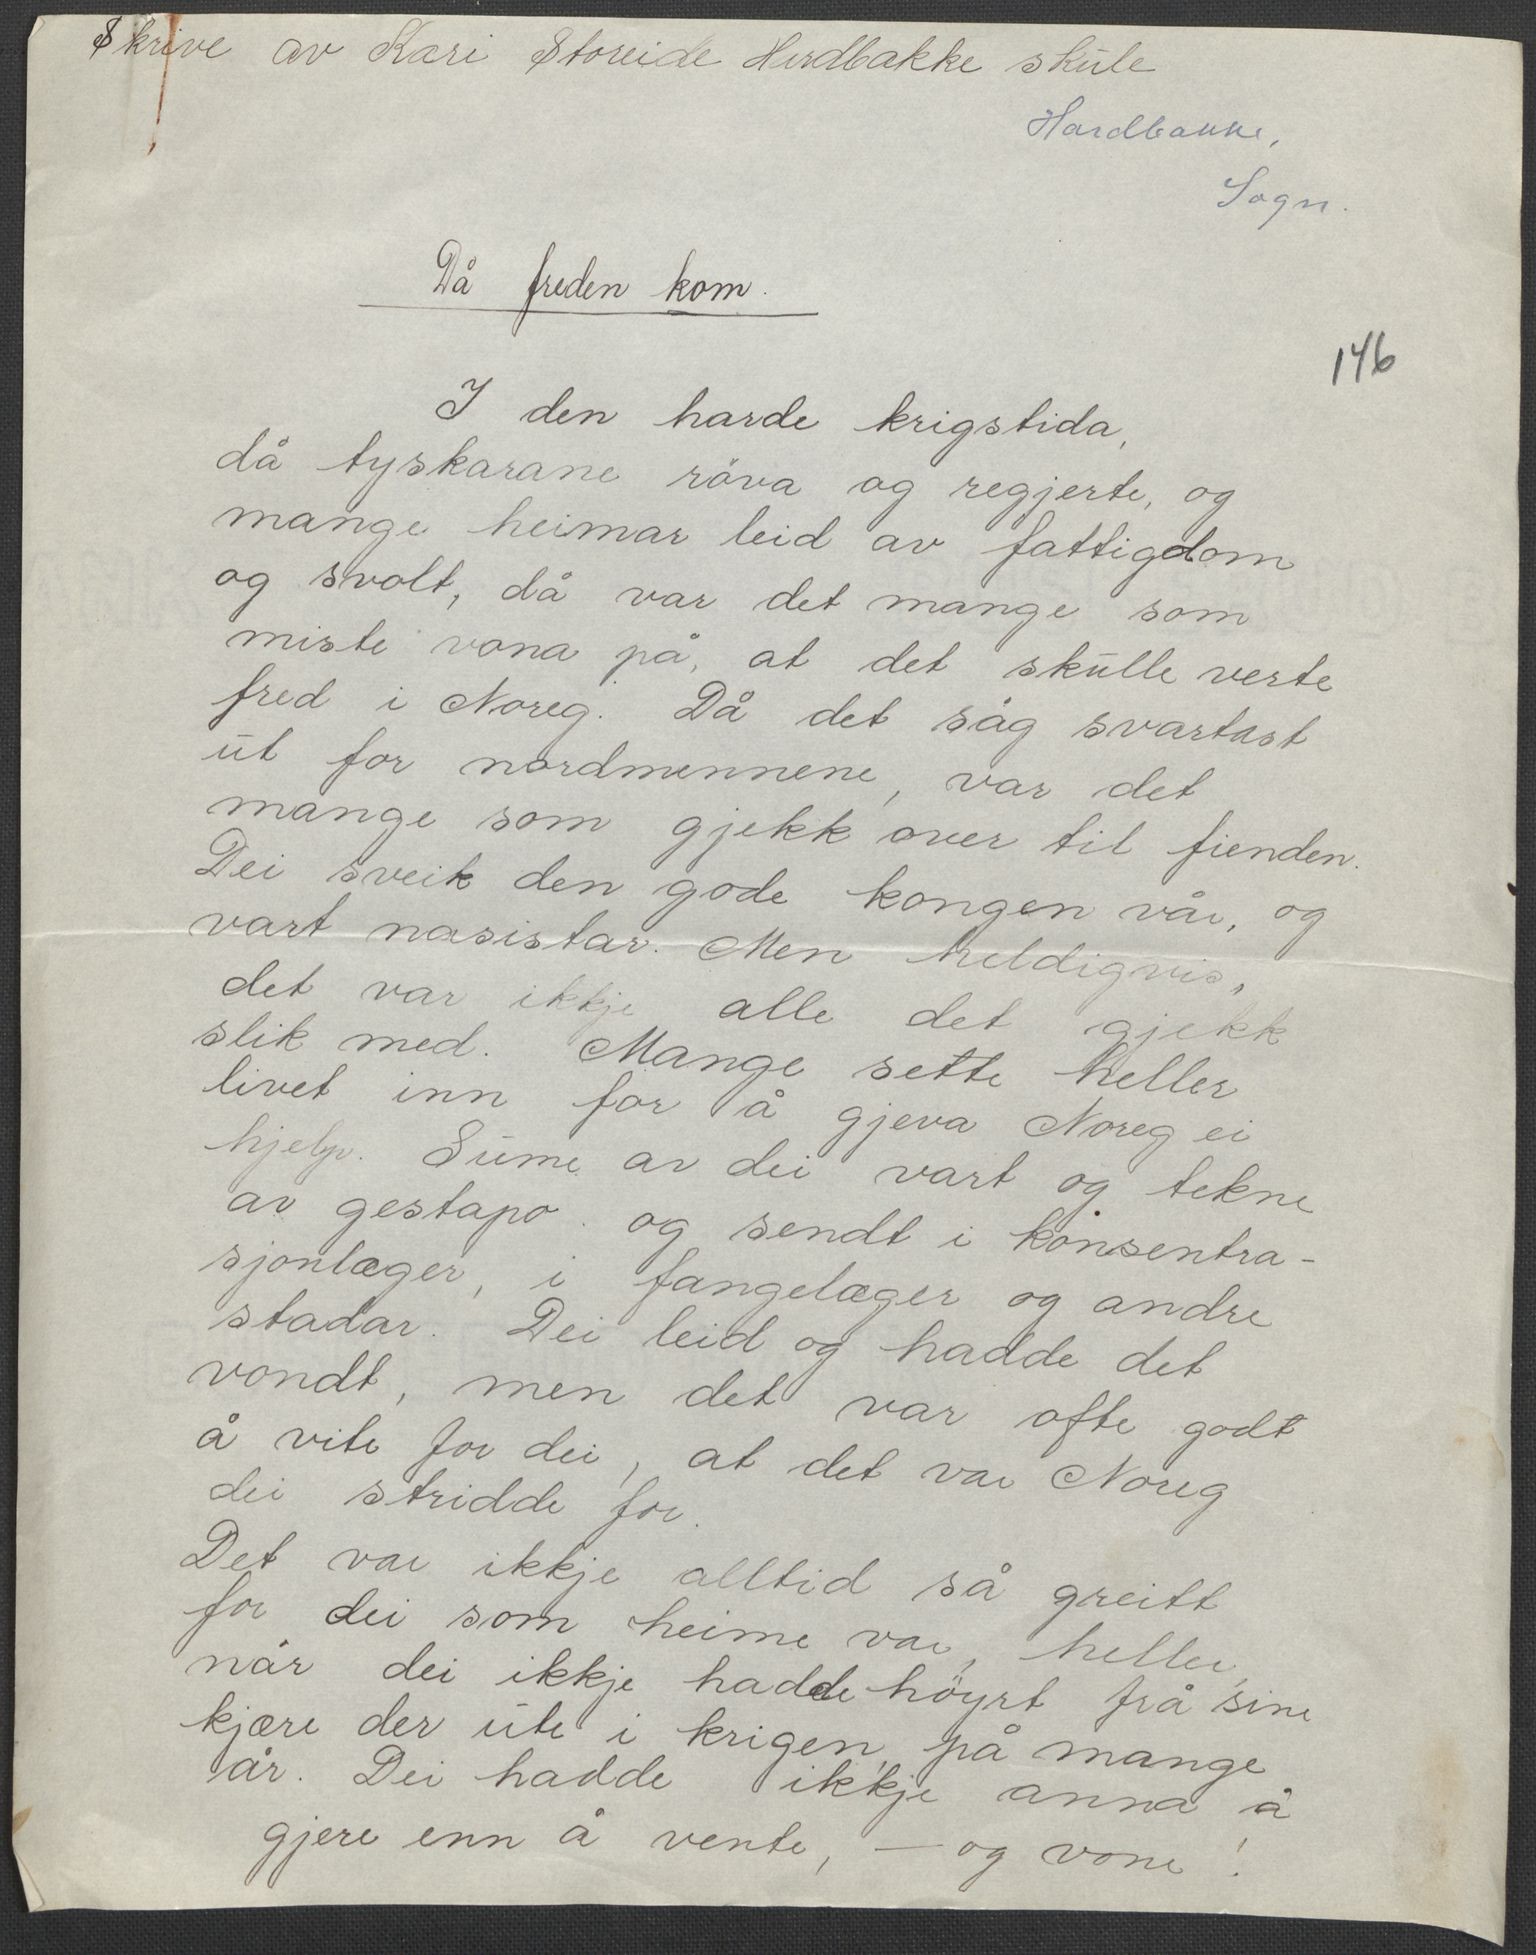 Skrive av Kari Storeide Herdbakke skŭle
Hardbakke,
Sogn.
Då freden kom.
146
I den harde krigstida,
då tyskarane röva og regjerte, og
mange heimar leid av fattigdom
og svolt, då var det mange som
miste vona på, at det skŭlle verte
fred i Noreg. Då det såg svartast
ŭt for nordmennene, var det
mange som gjekk over til fienden.
Dei sveik den gode kongen vår, og
vart nasistar. Men heldigvis,
det var ikkje alle det gjekk
slik med. Mange sette heller
livet inn for å gjeva Noreg ei
hjelp. Sŭme av dei vart og tekne
av gestapo og sendt i konsentra-
sjonlæger, i fangelæger og andre
stadar. Dei leid og hadde det
vondt, men det var ofte godt
å vite for dei, at det var Noreg
dei stridde for.
Det var ikkje alltid så greitt
for dei som heime var, heller,
når dei ikkje hadde höyrt frå sine
kjære der ŭte i krigen på mange
år. Dei hadde ikkje anna å
gjere enn å vente, — og vone!